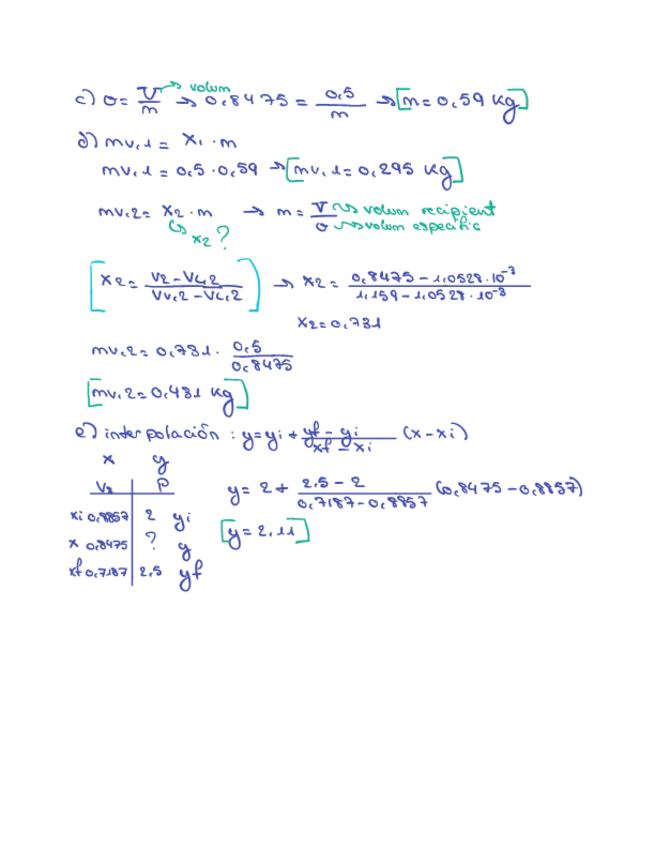 c) υ = V/m → volum → 0,8475 = 0,5/m → [m = 0,59 kg]
d) mv,1 = x1 · m
mv,1 = 0,5 · 0,59 → [mv,1 = 0,295 kg]
mv,2 = x2 · m → m = V/υ → volum recipient
→ volum específic
↳ x2?
[x2 = (v2 - vl,2)/(vv,2 - vl,2)] → x2 = (0,8475 - 1,0528·10⁻³)/(1,159 - 1,0528·10⁻³)
x2 = 0,731
mv,2 = 0,731 · 0,5/0,8475
[mv,2 = 0,431 kg]
e) interpolación : y = yi + (yf - yi)/(xf - xi) (x - xi)
x y
Vg P
xi 0,8857 2 yi
x 0,8475 ? y
xf 0,7187 2,5 yf
y = 2 + (2,5 - 2)/(0,7187 - 0,8857) (0,8475 - 0,8857)
[y = 2,11]